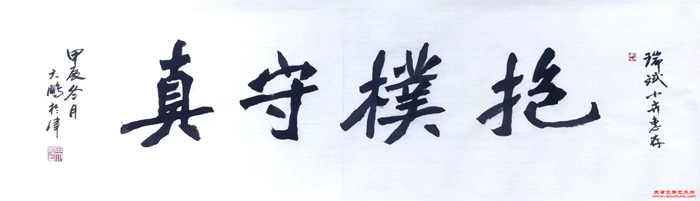 瑞斌小弟惠存
抱樸守真
甲辰冬月
大鵬於津
天津文学艺术网
www.tjculture.com